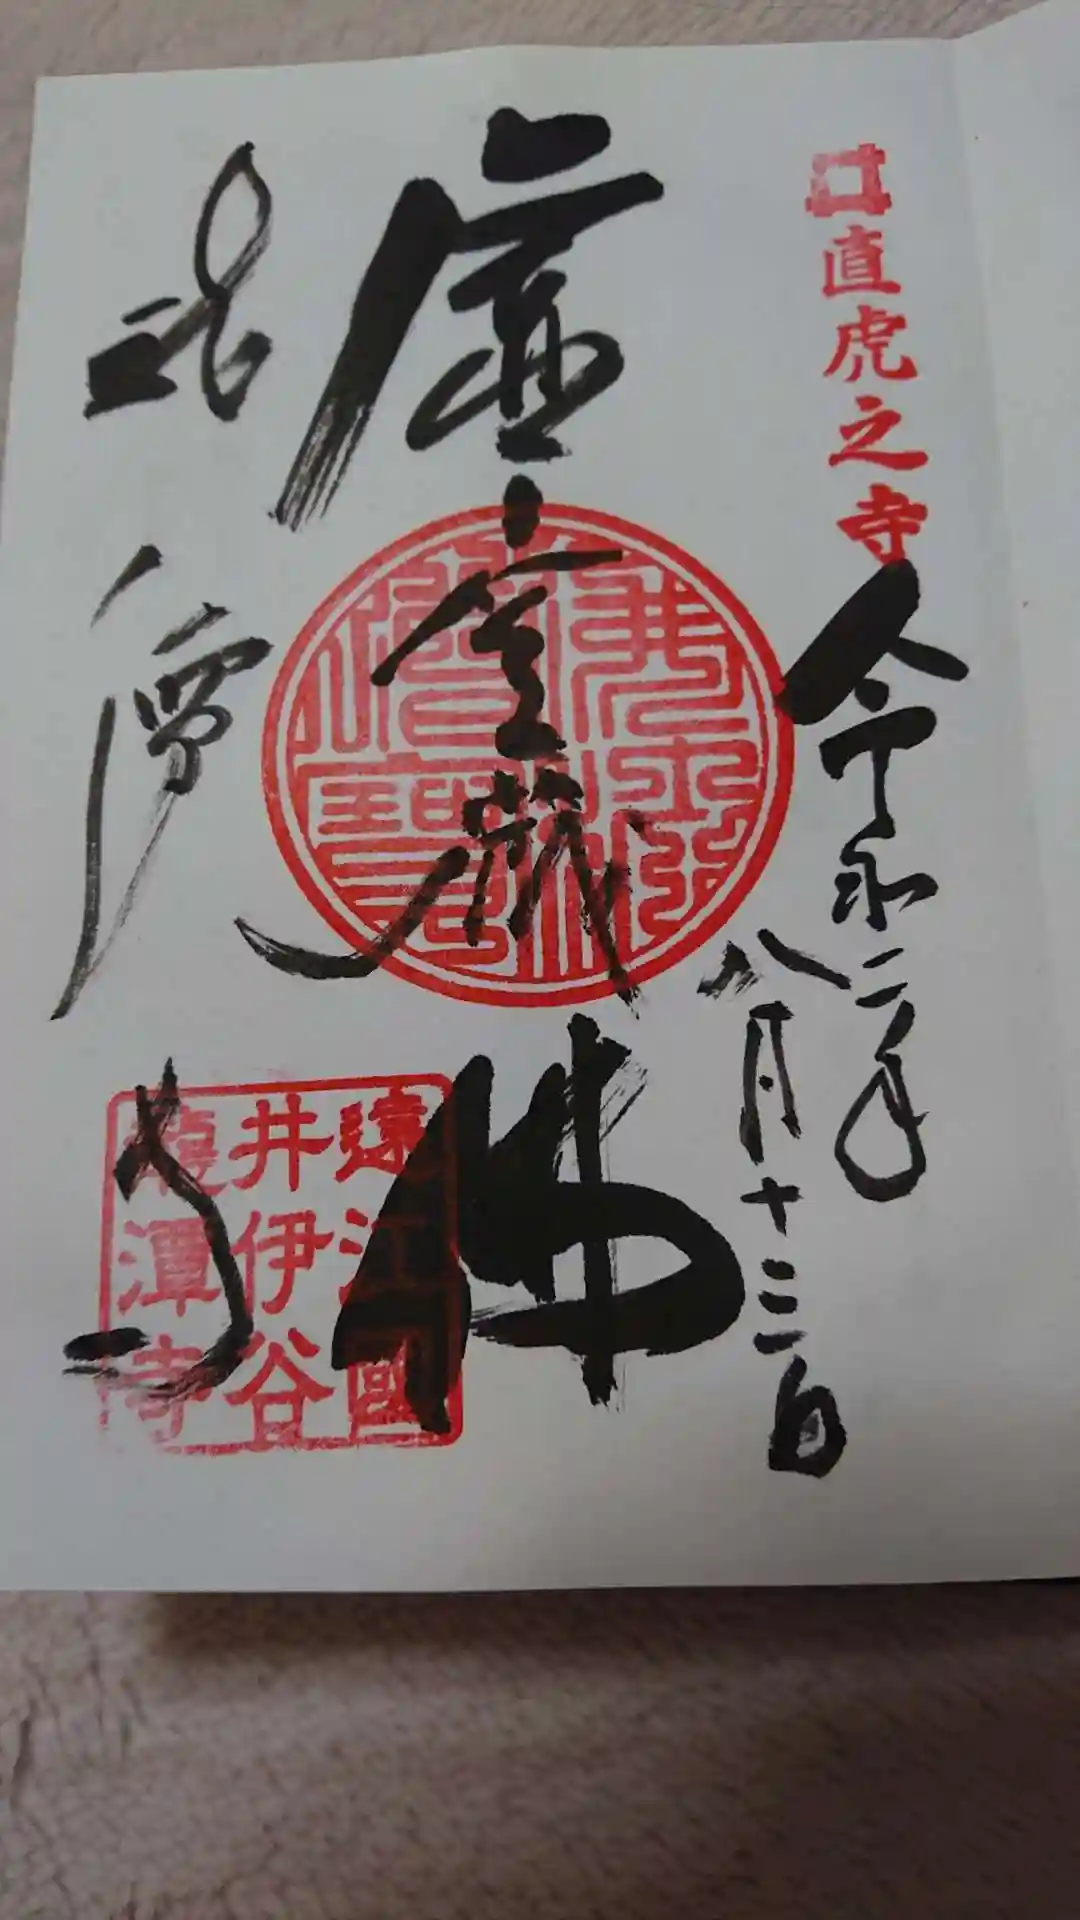 直虎之寺
令和二年
八月十三日
虚空蔵
佛
龍潭寺
遠江國
井伊谷
龍潭寺